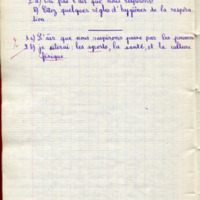 que nous respirons
b) Citez quelques règles d'hygiène de la respira-
tion
a) L'air que nous respirons passe par les poumons
b) je citerai : les sports, la santé, et la culture
physique